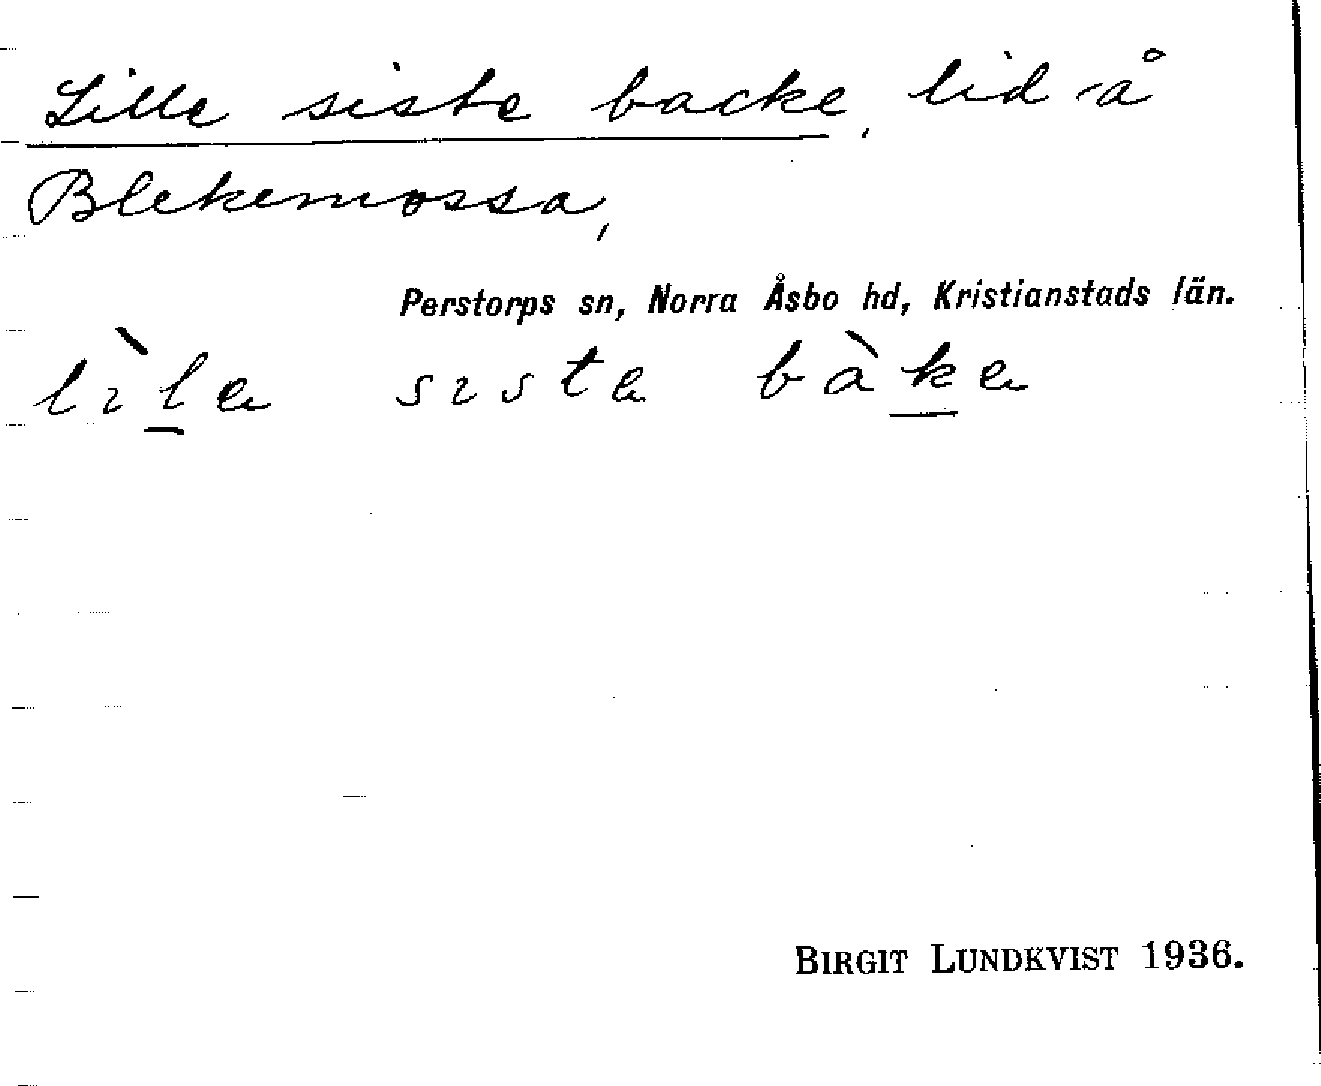 Lille siste backe, lid å
Blekemossa,
Perstorps sn, Norra Åsbo hd, Kristianstads län.
lìla sista bàka
BIRGIT LUNDKVIST 1936.